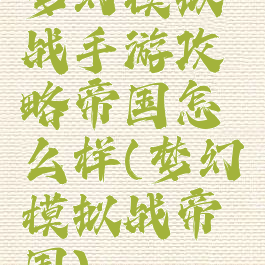 梦幻模拟
战手游攻
略帝国怎
么样(梦幻
模拟战帝
国)